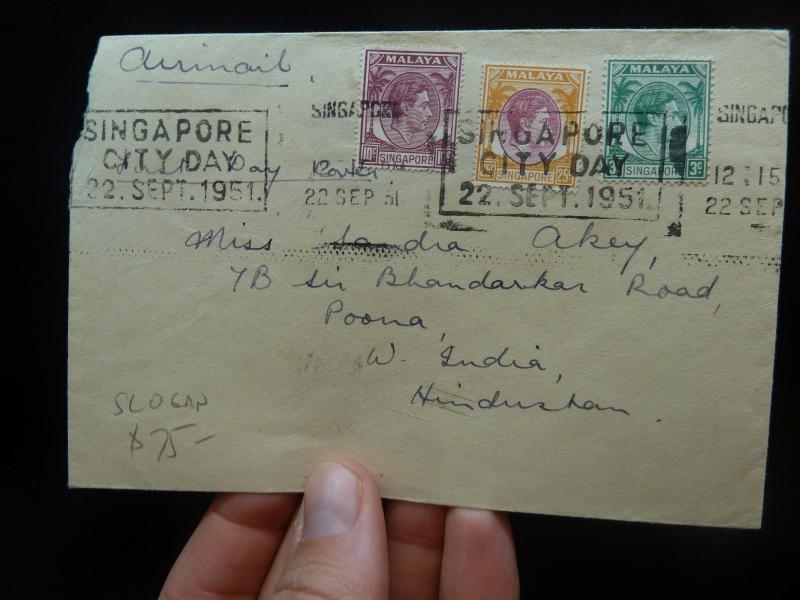 Airmail.
MALAYA
10C SINGAPORE 10C
MALAYA
SINGAPORE 25C
MALAYA
SINGAPORE 3C
SINGAPORE
CITY DAY
22. SEPT. 1951.
SINGAPORE
22 SEP 51
SINGAPORE
CITY DAY
22. SEPT. 1951.
SINGAPO
12 15
22 SEP
Day Cover
Miss Sandra Akey,
7B Sir Bhandarkar Road,
Poona,
W. India,
Hindustan.
SLOGAN
$75-